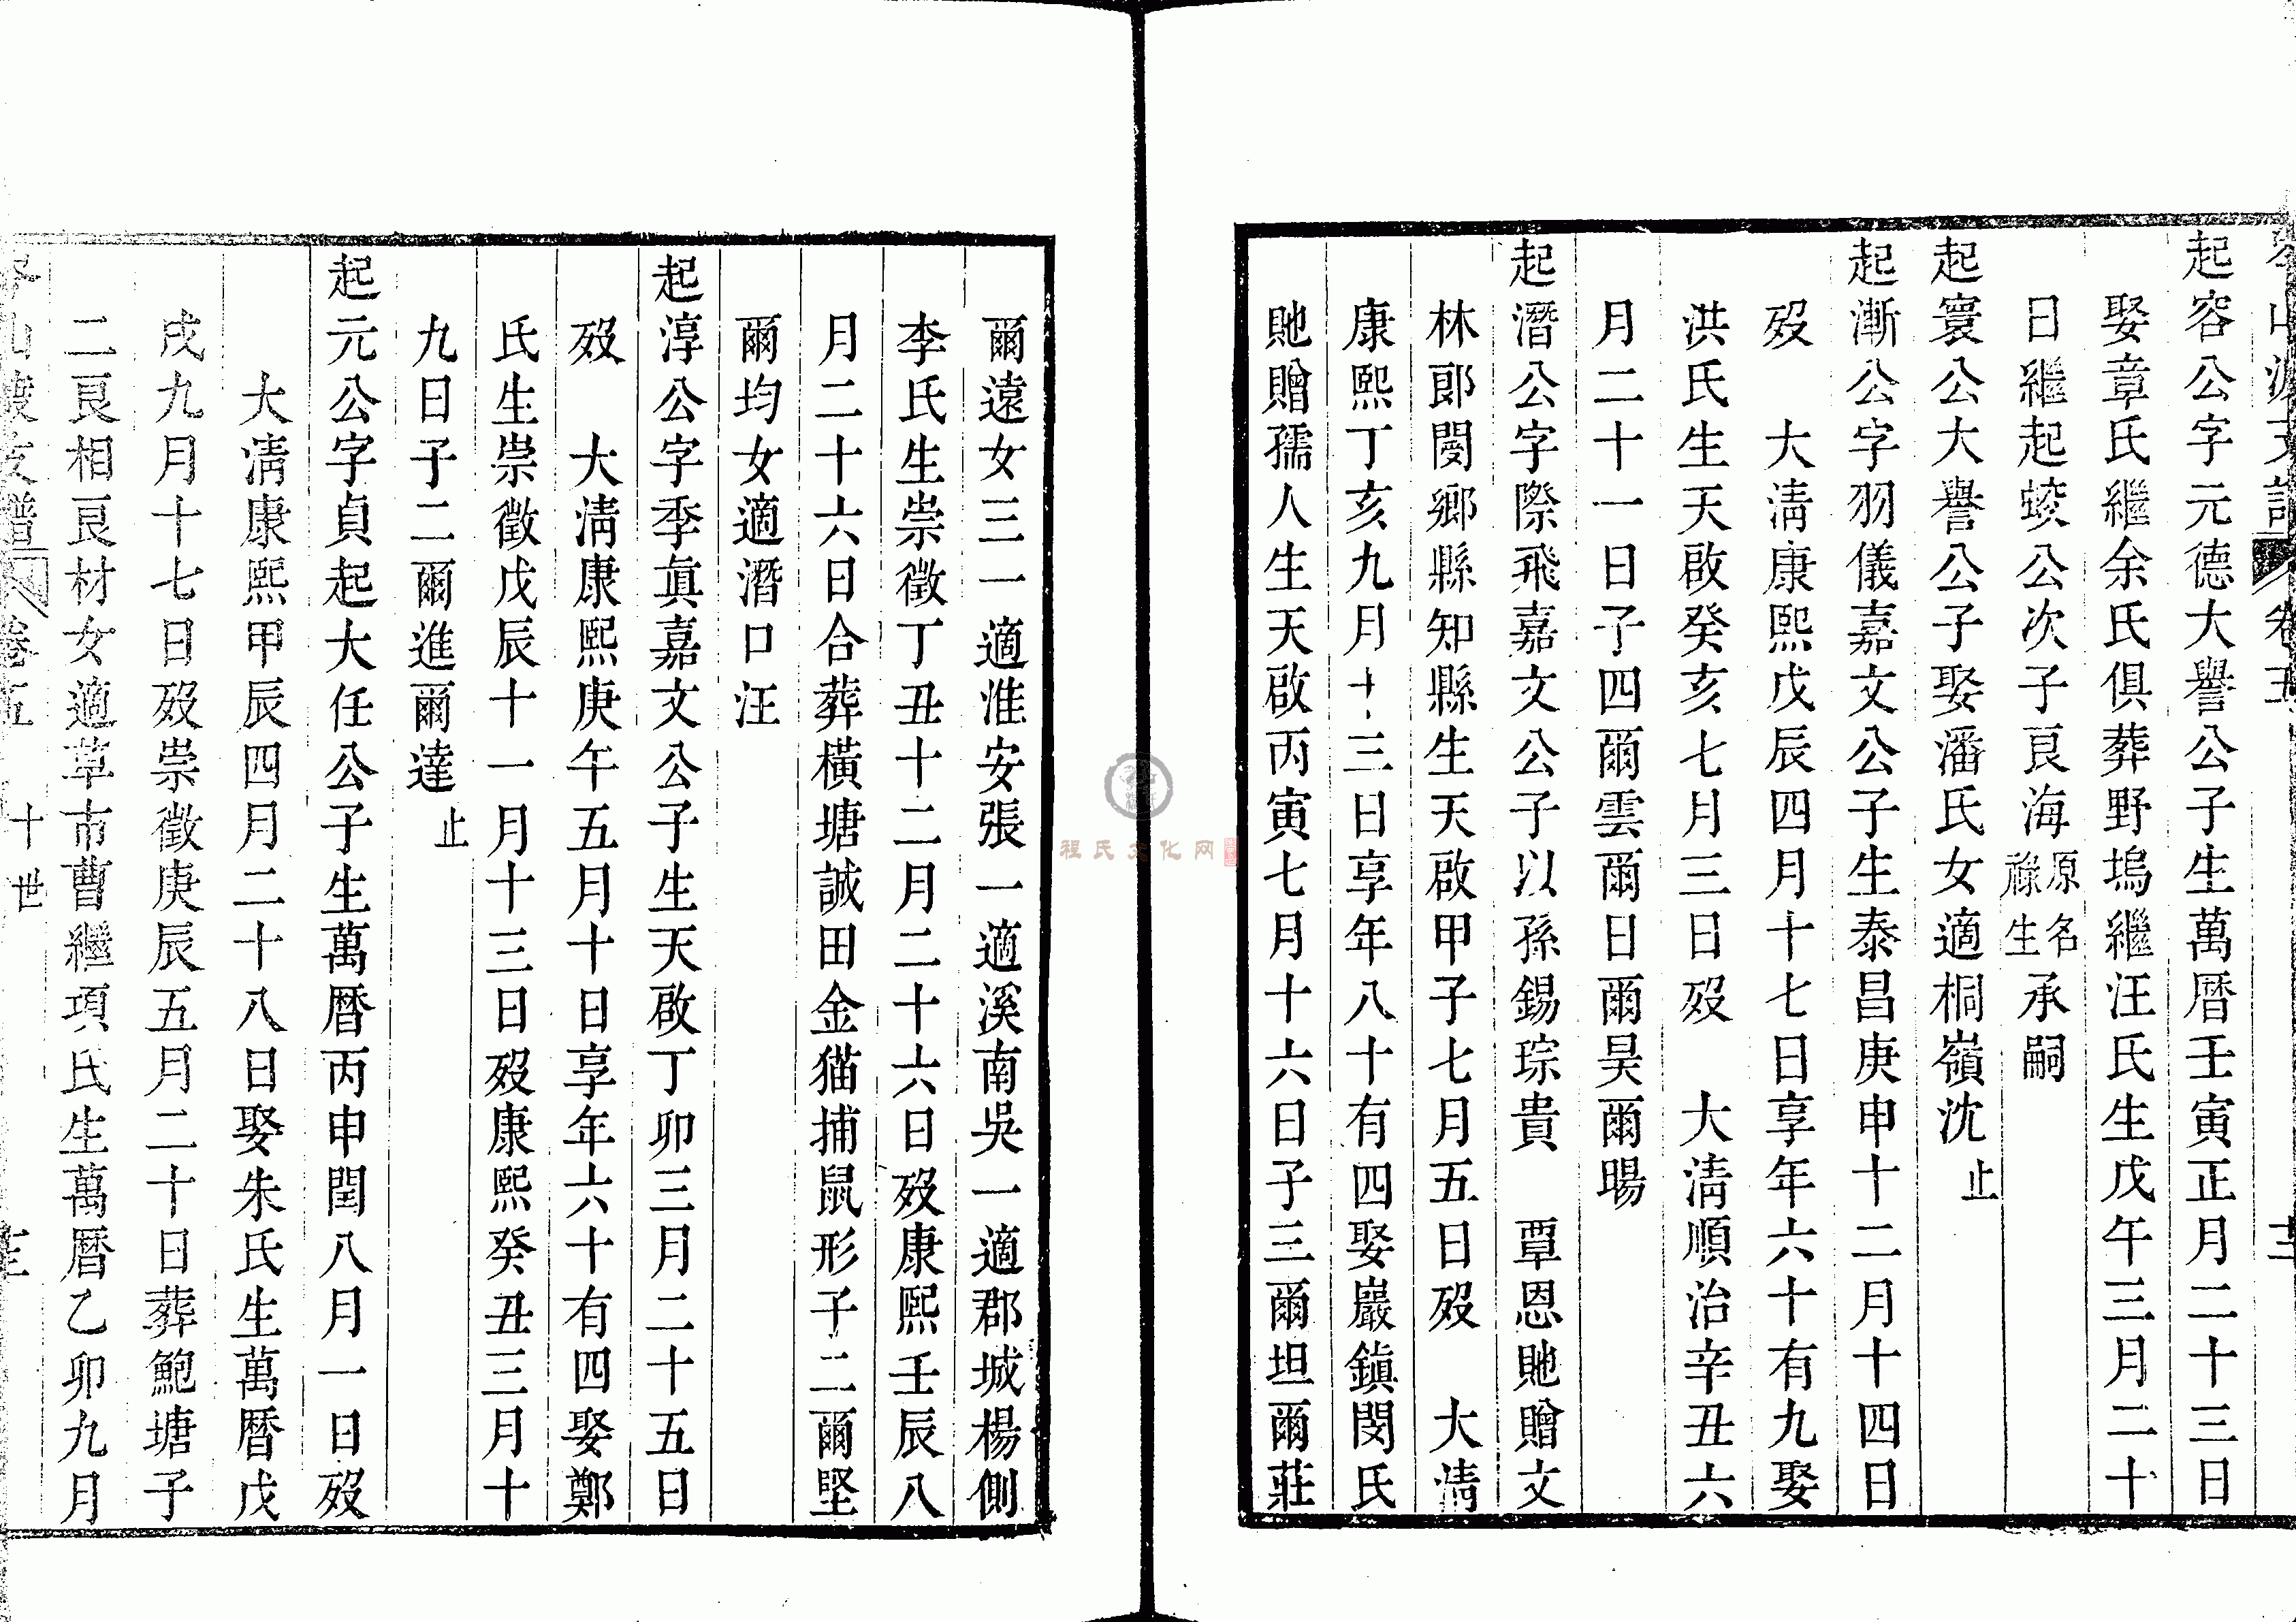 起容公字元德大譽公子生萬曆壬寅正月二十三日
娶章氏繼余氏俱葬野塢繼汪氏生戊午三月二十
日繼起蛟公次子良海原名祿生承嗣
起寰公大譽公子娶潘氏女適桐嶺沈止
起漸公字羽儀嘉文公子生泰昌庚申十二月十四日
歿 大清康熙戊辰四月十七日享年六十有九娶
洪氏生天啟癸亥七月三日歿 大清順治辛丑六
月二十一日子四爾雲爾日爾昊爾暘
起潛公字際飛嘉文公子以孫錫琮貴 覃恩貤贈文
林郎閿鄉縣知縣生天啟甲子七月五日歿 大清
康熙丁亥九月十三日享年八十有四娶嚴鎮閔氏
貤贈孺人生天啟丙寅七月十六日子三爾坦爾莊
爾遠女三一適淮安張一適溪南吳一適郡城楊側
李氏生崇徵丁丑十二月二十六日歿康熙壬辰八
月二十六日合葬橫塘誠田金猫捕鼠形子二爾堅
爾均女適潛口汪
起淳公字季眞嘉文公子生天啟丁卯三月二十五日
歿 大清康熙庚午五月十日享年六十有四娶鄭
氏生崇徵戊辰十一月十三日歿康熙癸丑三月十
九日子二爾進爾達止
起元公字貞起大任公子生萬曆丙申閏八月一日歿
大清康熙甲辰四月二十八日娶朱氏生萬曆戊
戌九月十七日歿崇徵庚辰五月二十日葬鮑塘子
二良相良材女適草市曹繼項氏生萬曆乙卯九月
支譜 卷五 十世
程氏文化网